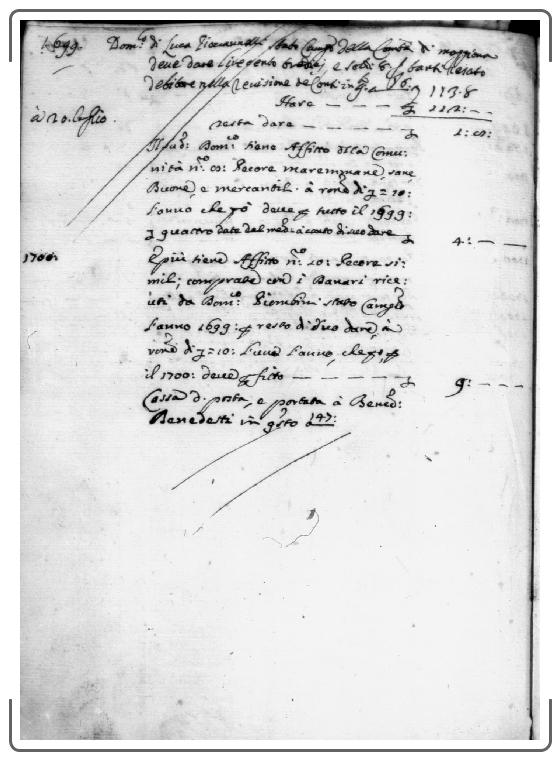 1699. Dom.co di Luca Giovannelli stato Camg.o della Com.tà di moggiona
deve dare lire cento tredici, e soldi 8 f. tanti restato
debitore nella Revisione de Conti in q.o a 86. £ 113.8
Hare — — £ 112: —
à 20. luglio. resta dare — — — — £ 1: 8:
Il sud.o Dom.co tiene Affitto della Comu-
nità n.o Pecore maremmane, sane,
Buone, e mercantil. à rone di £ = 10:
l'anno che p.o deve p tutto il 1699:
£ quattro date dal med.o à conto di suo dare £ 4: — —
1700: E più tiene Affitto n.o 10: Pecore si-
mil; comprate con i Danari rice-
uti da Dom.co Piombini stato Camg.o
l'anno 1699: p resto di suo dare, à
rone di £ = 10: l'una l'anno, che p
il 1700: deve p fitto — — — — £ 9: — — —
Cassa d. posta, e portata à Bened.o
Benedetti in q.sto a 147: